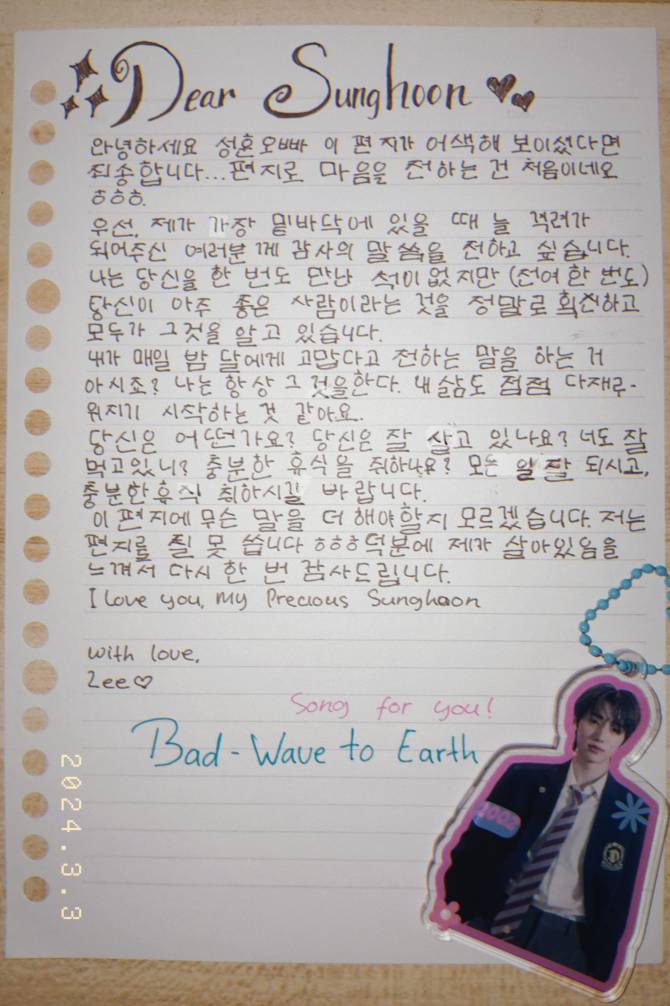 Dear Sunghoon
안녕하세요 성훈오빠 이 편지가 어색해 보이셨다면
죄송합니다...편지로 마음을 전하는 건 처음이네요
ㅎㅎㅎ.
우선, 제가 가장 밑바닥에 있을 때 늘 격려가
되어주신 여러분께 감사의 말씀을 전하고 싶습니다.
나는 당신을 한 번도 만난 적이 없지만 (전여 한 번도)
당신이 아주 좋은 사람이라는 것을 정말로 확신하고
모두가 그것을 알고 있습니다.
내가 매일 밤 달에게 고맙다고 전하는 말을 하는 거
아시죠? 나는 항상 그것을한다. 내 삶도 점점 다채로-
워지기 시작하는 것 같아요.
당신은 어떤가요? 당신은 잘 살고 있나요? 너도 잘
먹고있니? 충분한 휴식을 취하나요? 모든 일 잘 되시고,
충분한휴식 취하시길 바랍니다.
이 편지에 무슨 말을 더 해야할지 모르겠습니다. 저는
편지를 잘 못 씁니다 ㅎㅎㅎ덕분에 제가 살아있음을
느껴서 다시 한 번 감사드립니다.
I love you, My Precious Sunghoon
with love,
Zee♡
Song for you!
Bad - Wave to Earth
2002
2024.3.3